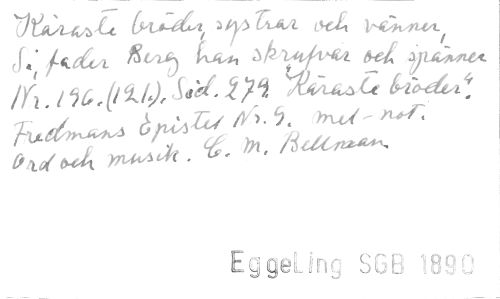 Käraste bröder, systrar och vänner,
Si, fader Berg han skrufvar och spänner
Nr. 196. (121.). Sid. 279. "Käraste bröder".
Fredmans Epistel Nr. 9. mel-not.
Ord och musik. C. M. Bellman
EggeLing SGB 1890